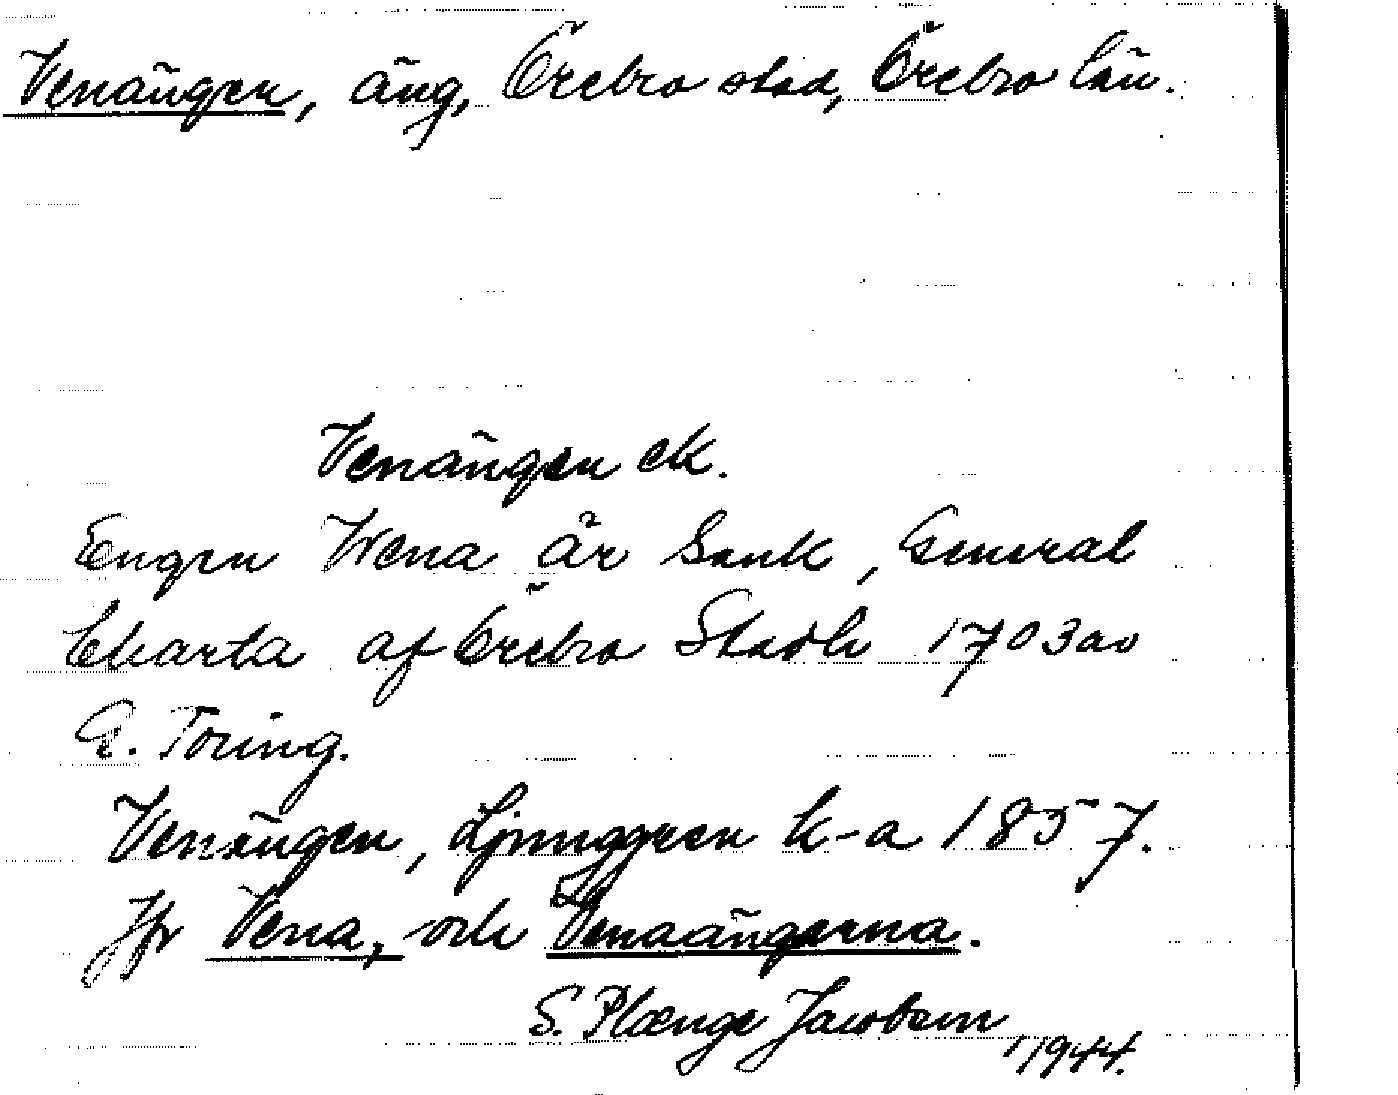 Venängen, äng, Örebro stad, Örebro län.
Venängen ek.
Engen Wena är Sank, General
Charta af Örebro Stadh 1703 av
G. Toring.
Venängen, Ljunggren k-a 1857.
Jfr Vena, och Venaängarna.
S. Plænge Jacobson 1944.